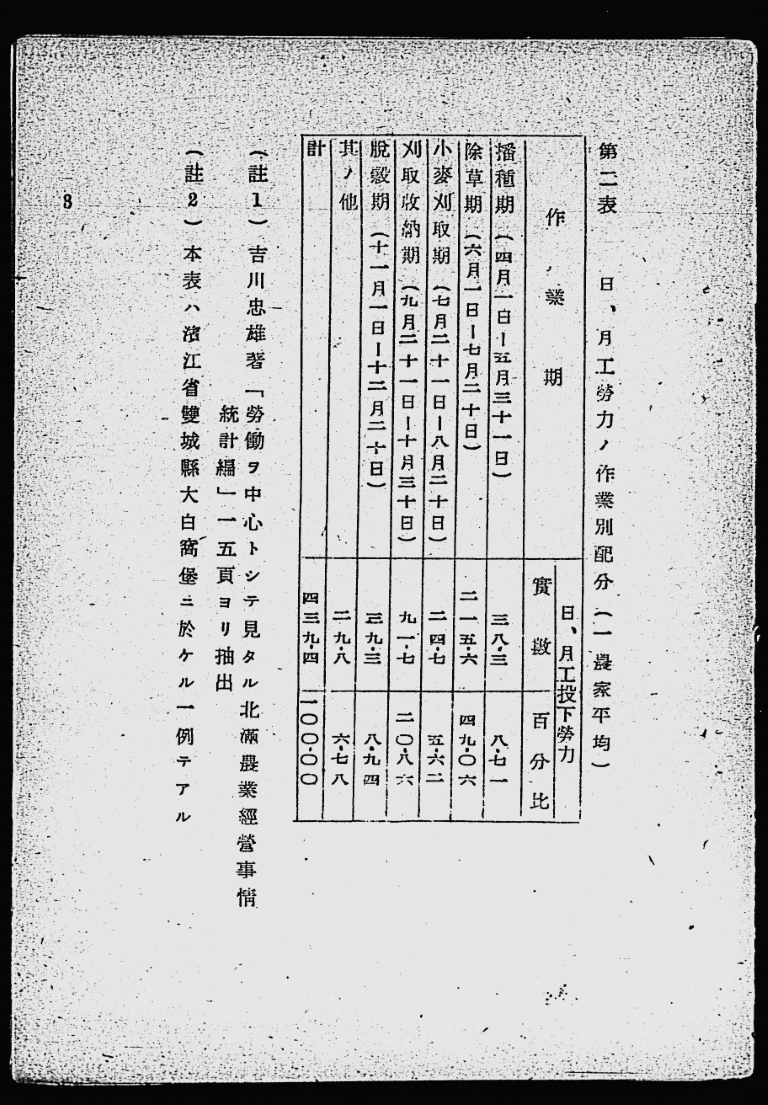 第二表　日、月工勞力ノ作業別配分（一農家平均）
作ノ業期　日、月工投下勞力
實數　百分比
播種期（四月一日ー五月三十一日）　三八・三　八・七一
除草期（六月一日ー七月二十日）　二一五・六　四九・〇六
小麥刈取期（七月二十一日ー八月二十日）　二四・七　五・六二
刈取收納期（九月二十一日ー十月三十日）　九一・七　二〇・八六
脫穀期（十一月一日ー十二月二十日）　三九・三　八・九四
其ノ他　二九・八　六・七八
計　四三九・四　一〇〇・〇〇
（註1）吉川忠雄著「勞働ヲ中心トシテ見タル北滿農業經營事情
統計編」一五頁ヨリ抽出
（註2）本表ハ濱江省雙城縣大白窩堡ニ於ケル一例テアル
8